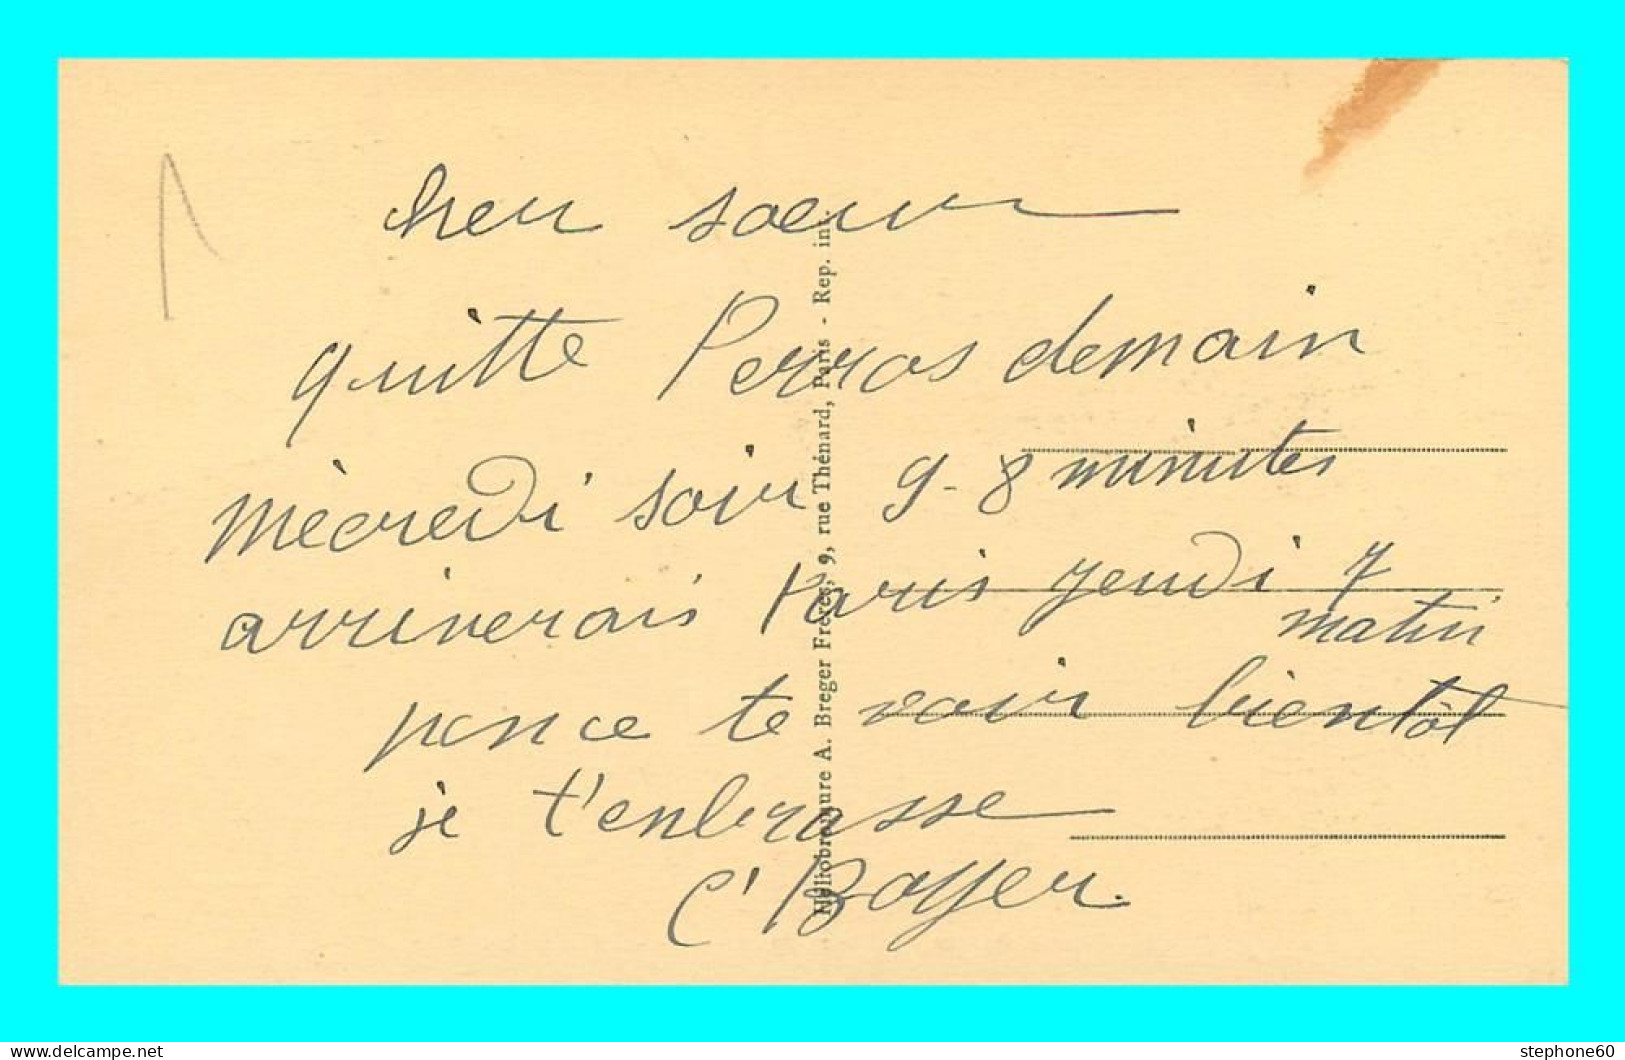 cher soeur
quitte Perros demain
mècredi soir 9-8 minutes
arriverais Paris jeudi 7
matin
pence te voir bientôt
je t'enbrasse
C' Boyer
Héliobromure A. Breger Frères, 9, rue Thénard, Paris - Rep. int.
delcampe.net
stephone60